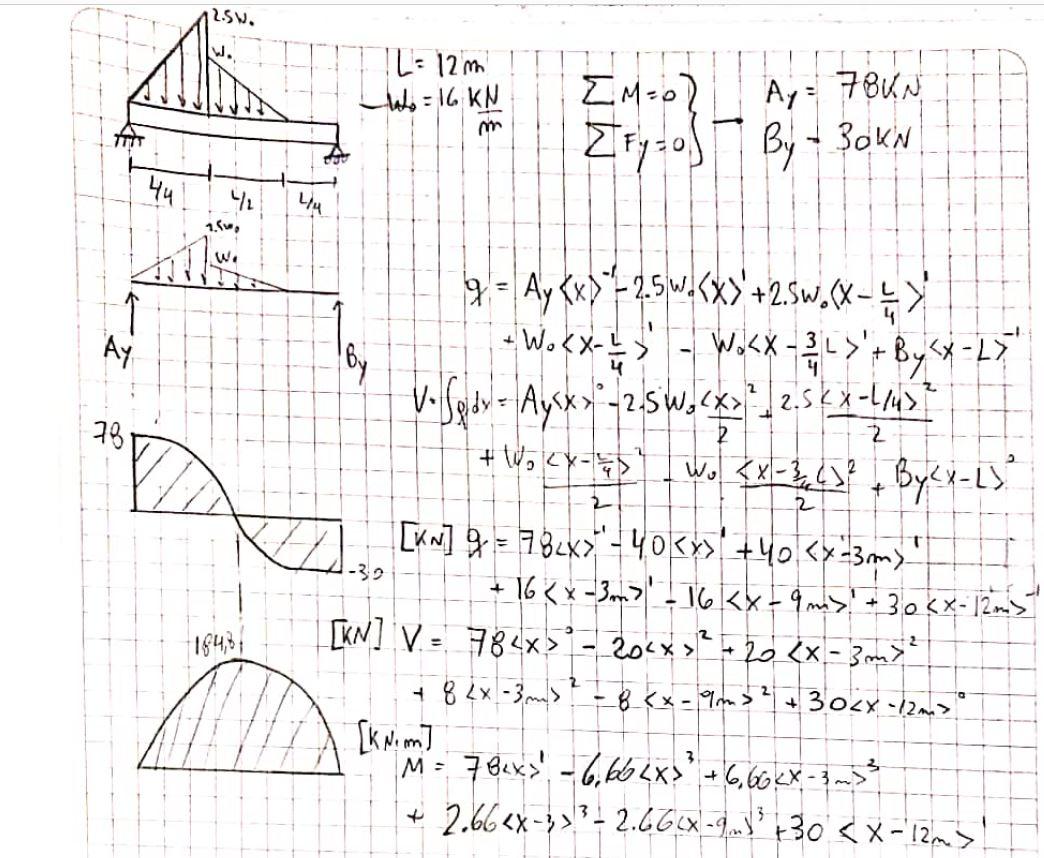 2.5W₀
W₀
L = 12m
W₀ = 16 KN/m
∑M=0
∑Fy=0
Ay = 78KN
By - 30KN
L/4 L/2 L/4
2.5W₀
W₀
Ay
By
q = Ay<x>⁻¹ - 2.5W₀<x>¹ + 2.5W₀<x - L/4>¹
+ W₀<x - L/4>¹ - W₀<x - 3/4 L>¹ + By<x - L>⁻¹
V = ∫q dx = Ay<x>⁰ - 2.5W₀ <x>²/2 + 2.5 <x - L/4>²/2
+ W₀ <x - L/4>²/2 - W₀ <x - 3/4 L>²/2 + By<x - L>⁰
78
-30
[KN] q = 78<x>⁻¹ - 40<x>¹ + 40<x - 3m>¹
+ 16<x - 3m>¹ - 16<x - 9m>¹ + 30<x - 12m>⁻¹
[KN] V = 78<x>⁰ - 20<x>² + 20<x - 3m>²
+ 8<x - 3m>² - 8<x - 9m>² + 30<x - 12m>⁰
184,8
[KN.m]
M = 78<x>¹ - 6,66<x>³ + 6,66<x - 3m>³
+ 2.66<x - 3>³ - 2.66<x - 9m>³ + 30<x - 12m>¹